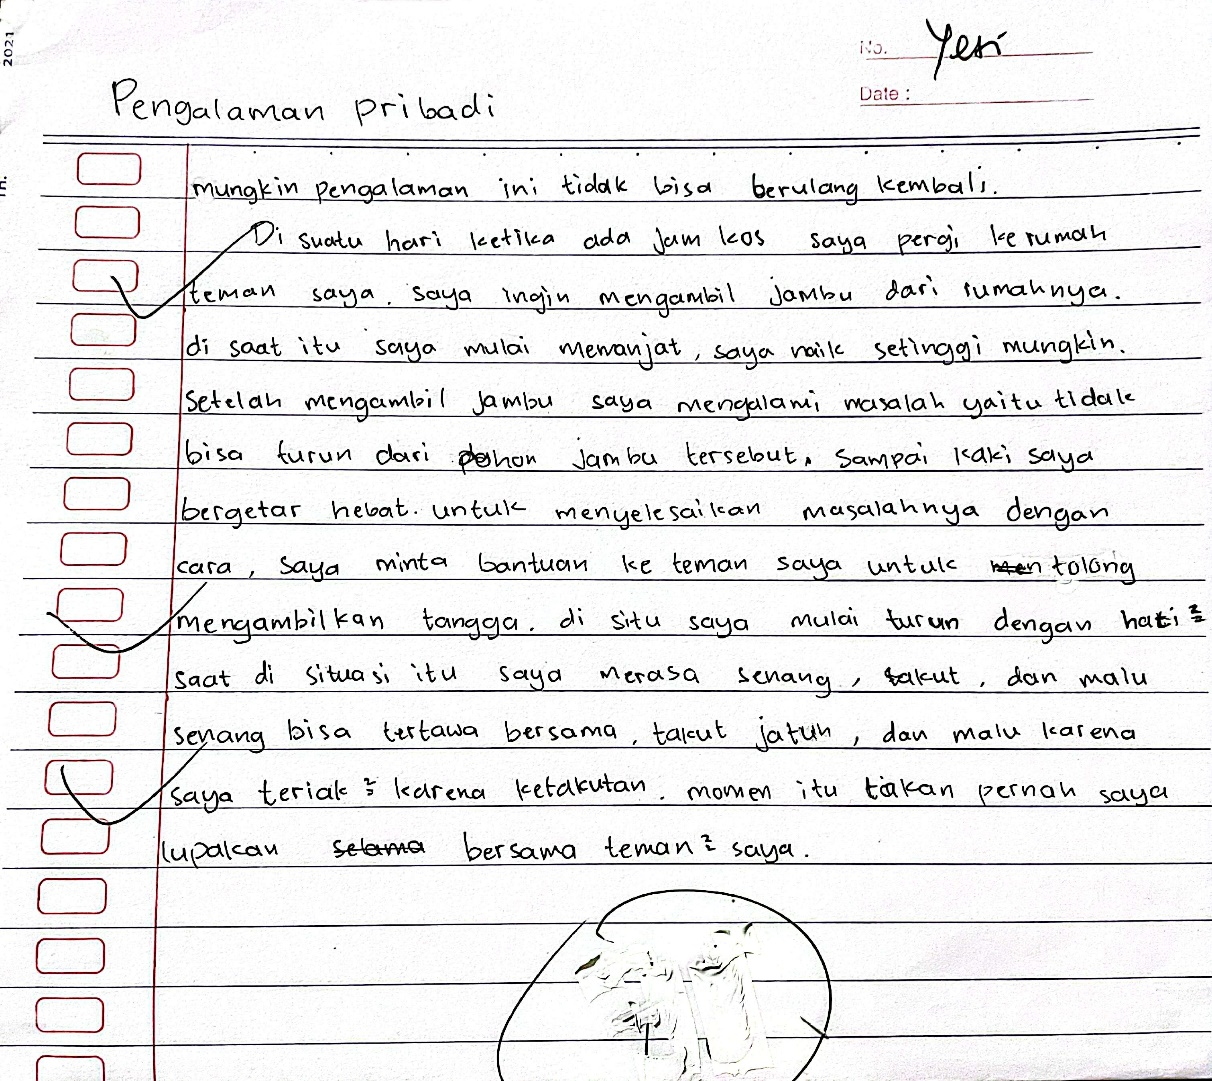 2021
No. Yesi
Date :
Pengalaman pribadi
mungkin pengalaman ini tidak bisa berulang kembali.
Di suatu hari ketika ada jam kos saya pergi ke rumah
teman saya. saya ingin mengambil jambu dari rumahnya.
di saat itu saya mulai memanjat, saya naik setinggi mungkin.
setelah mengambil jambu saya mengalami masalah yaitu tidak
bisa turun dari pohon jambu tersebut, sampai kaki saya
bergetar hebat. untuk menyelesaikan masalahnya dengan
cara, saya minta bantuan ke teman saya untuk men tolong
mengambilkan tangga. di situ saya mulai turun dengan hati²
saat di situasi itu saya merasa senang, takut, dan malu
senang bisa tertawa bersama, takut jatuh, dan malu karena
saya teriak² karena ketakutan. momen itu takan pernah saya
lupakan selama bersama teman² saya.